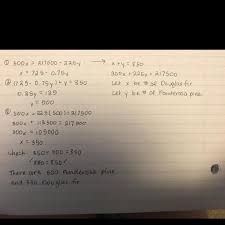 300x = 217500 - 225y → x + y = 850
x = 725 - 0.75y 300x + 225y = 217500
② 725 - 0.75y + y = 850 Let x be # of Douglas fir
0.25y = 125 Let y be # of Ponderosa pine
y = 500
③ 300x + 225(500) = 217500
300x + 112500 = 217500
300x = 105000
x = 350
Check 350 + 500 = 850
850 = 850 ✓
There are 500 Ponderosa pine
and 350 Douglas fir